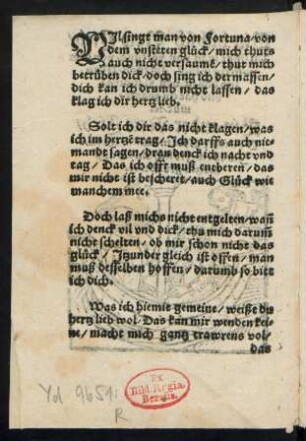 VIl singt man von Fortuna / von
dem vnsteten glück / mich thuts
auch nicht versaumē / thut mich
betrüben dick / doch sing ich dermassen /
dich kan ich drumb nicht lassen / das
klag ich dir hertz lieb.
Solt ich dir das nicht klagen / was
ich im hertzē trag / Ich darffs auch nie-
mandt sagen / dran denck ich nacht vnd
tag / Das ich offt muß enberen / das
mir nicht ist bescheret / auch Glück wie
manchem mee.
Doch laß michs nicht entgelten / wañ
ich denck vil vnd dick / thu mich darum̃
nicht schelten / ob mir schon nicht das
glück / Itzunder gleich ist offen / man
muß desselben hoffen / darumb so bitt
ich dich.
Was ich hiemit gemeine / weißt du
hertz lieb wol / Das kan mir wenden kei-
ne / macht mich gantz trawrens vol /
das
Yd 9651:
R
Ex
Bibl. Regia.
Berolin.